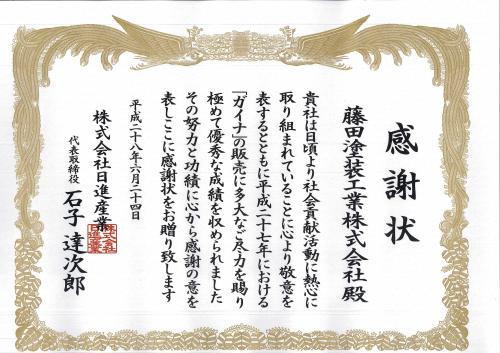 感謝状
藤田塗装工業株式会社殿
貴社は日頃より社会貢献活動に熱心に
取り組まれていることに心より敬意を
表するとともに平成二十七年における
「ガイナ」の販売に多大なご尽力を賜り
極めて優秀な成績を収められました
その努力と功績に心から感謝の意を
表しここに感謝状をお贈り致します
平成二十八年六月二十四日
株式会社日進産業
代表取締役 石子達次郎
株式会社
日進産業